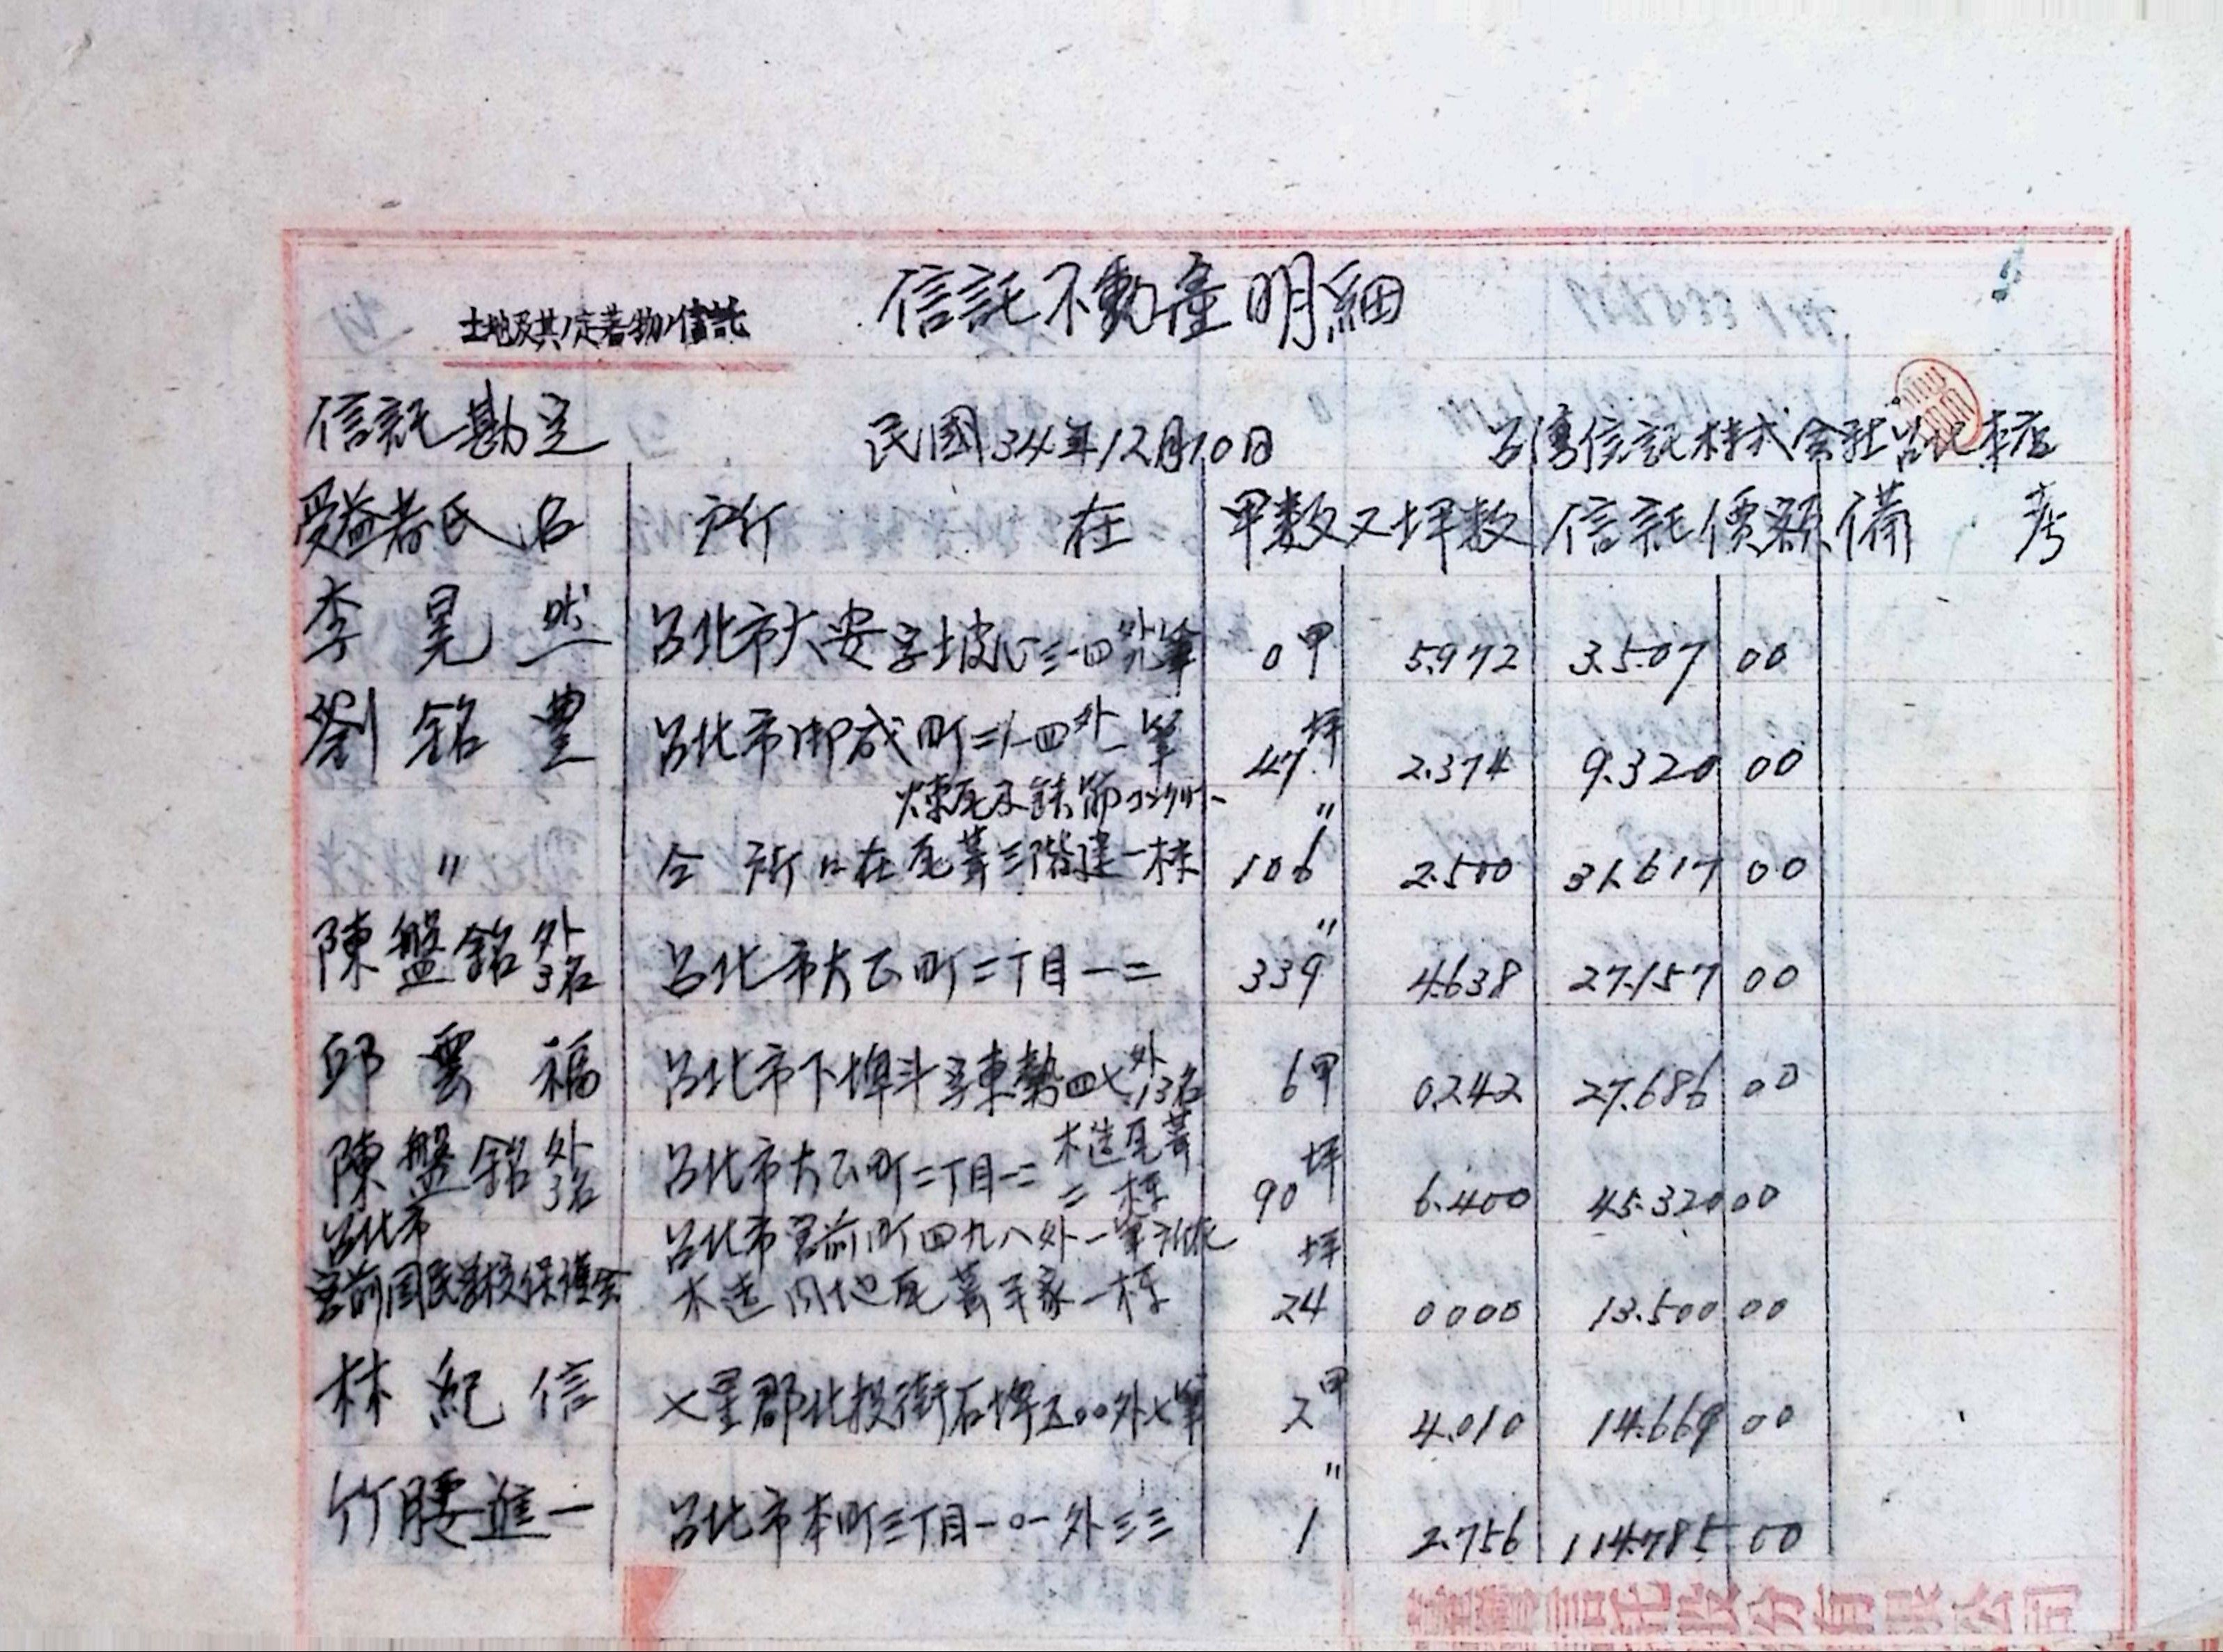 信託不動産明細
土地及其ノ定着物ノ信託
信託勘定 民國34年12月10日 台湾信託株式会社台北本店
受益者氏名 所在 甲数又坪数 信託價額 備考
李晃然 台北市大安字坡心三一四外九筆 0甲 5.972 3.507 00
劉銘豊 台北市御成町二ノ一四外一筆 47坪 2.374 9.320 00
煉瓦及鉄筋コンクリート
〃 仝所ニ在瓦葺三階建一棟 106〃 2.500 31.617 00
陳盤銘外3名 台北市大正町二丁目一二 339〃 4.638 27.157 00
邱雲福 台北市下埤斗字東勢四七外13名 6甲 0.242 27.686 00
陳盤銘外3名 台北市大正町二丁目一二 木造瓦葺二棟 90坪 6.400 45.320 00
台北市 台北市宮前町四九八外一筆 坪
宮前国民学校保護会 木造内地瓦葺平家一棟 24 0000 13.500 00
林紀信 七星郡北投街石埤五〇〇外七筆 2甲 4.010 14.669 00
竹腰進一 台北市本町三丁目一〇一外三三 1〃 2.756 114.785 00
臺灣信託股份有限公司